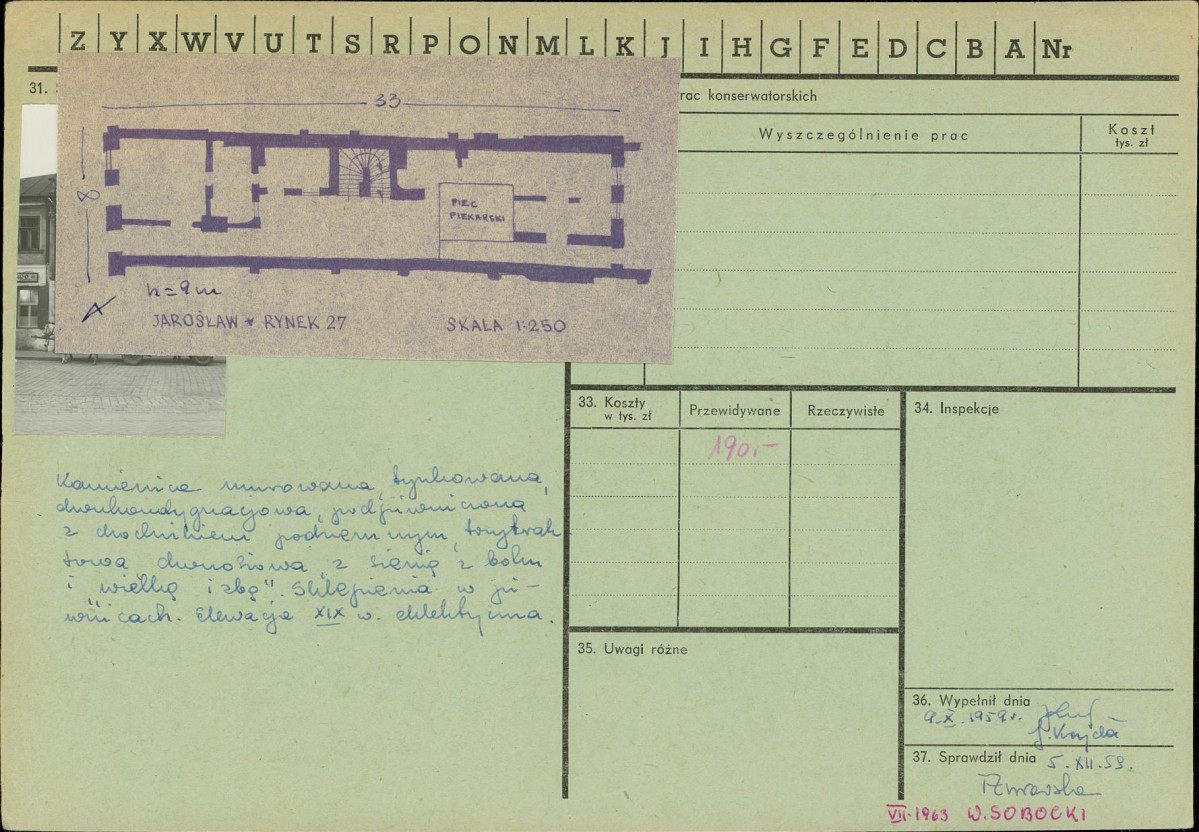 Z Y X W V U T S R P O N M L K J I H G F E D C B A Nr
31.
33
8
PIEC
PIEKARSKI
h=9m
JAROSŁAW * RYNEK 27
SKALA 1:250
rac konserwatorskich
Wyszczególnienie prac
Koszt
tys. zł
33. Koszty
w tys. zł
Przewidywane
Rzeczywiste
190.-
34. Inspekcje
Kamienica murowana, tynkowana,
dwukondygnacjowa, podpiwniczona
z chodnikiem podziemnym, trzytrak
towa dwuosiowa, z sienią z boku
i "wielką izbą". Sklepienia w pi-
wnicach. Elewacja XIX w. eklektyczna.
35. Uwagi różne
36. Wypełnił dnia
9.X.1959r.
37. Sprawdził dnia 5.XII.59.
VII.1963 W.SOBOCKI